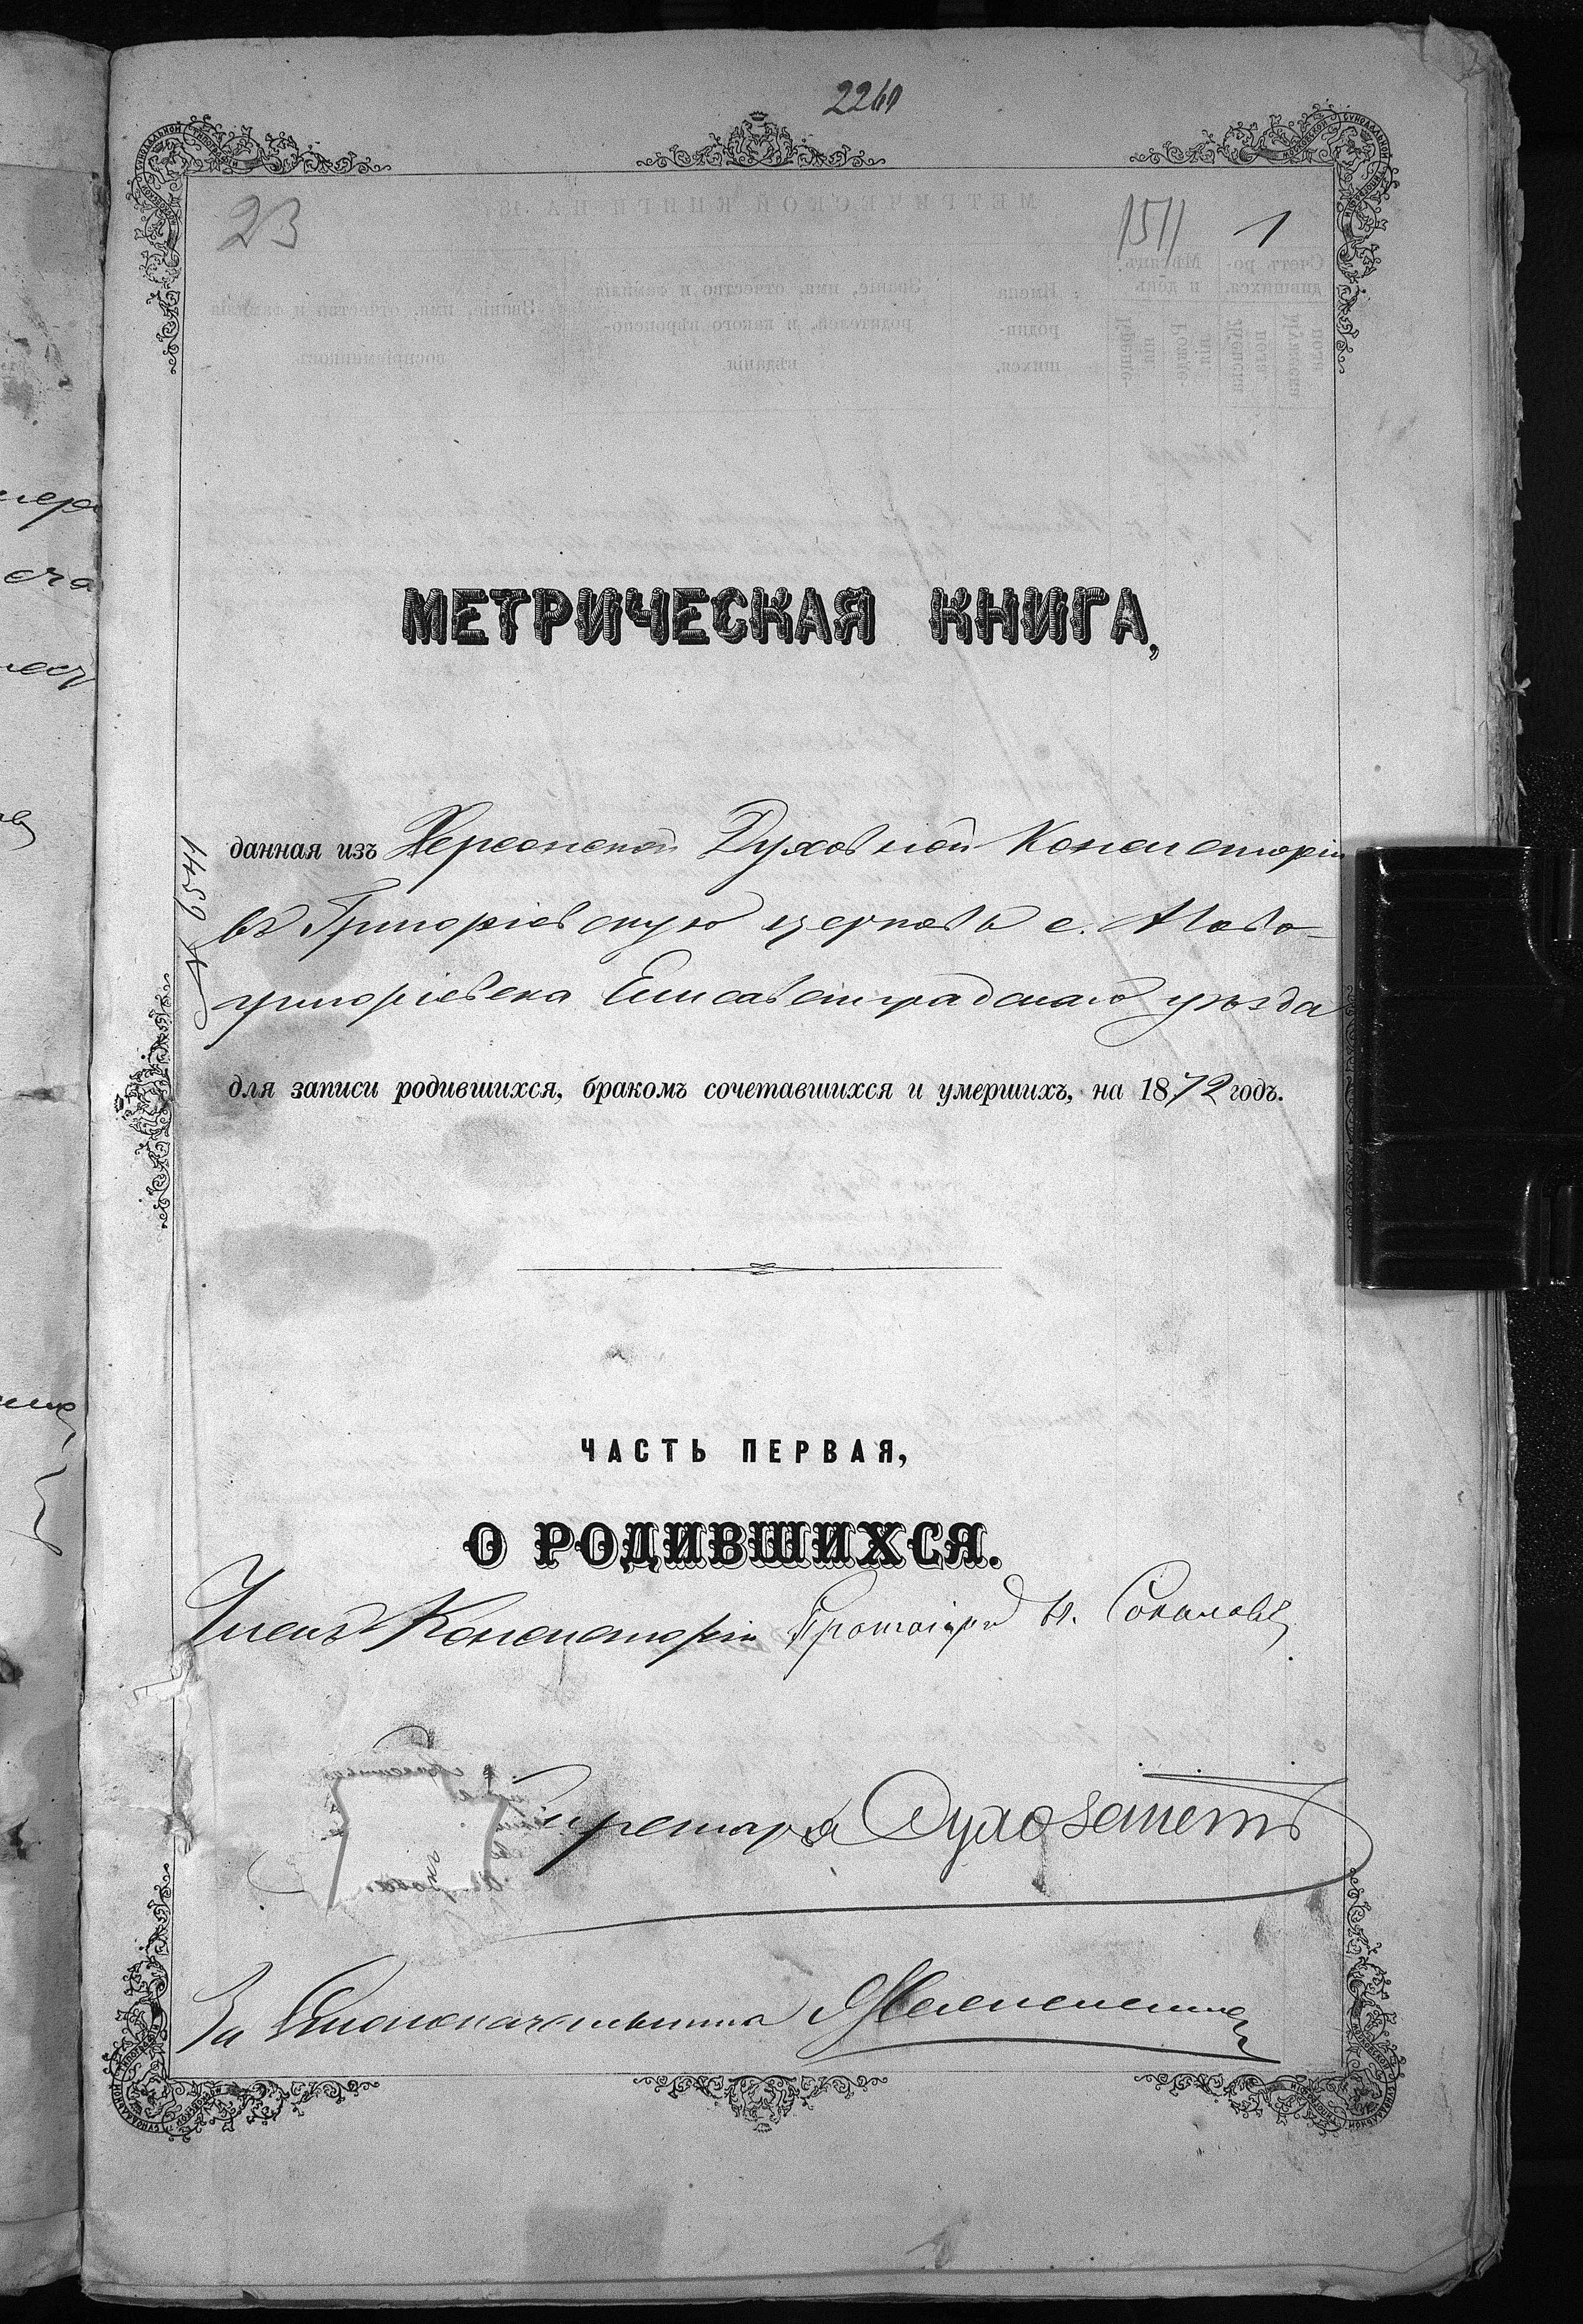 2260
23
1511 1
МЕТРИЧЕСКАЯ КНИГА,
№ 6541
данная изъ Херсонской Духовной Консисторіи
въ Григоріевскую церковь с. Ново-
григорьевка Елисаветградскаго уѣзда
для записи родившихся, бракомъ сочетавшихся и умершихъ, на 1872 годъ.
ЧАСТЬ ПЕРВАЯ,
О РОДИВШИХСЯ.
Членъ Консисторіи Протоіерей Соколовъ
Секретарь
За Столоначальника